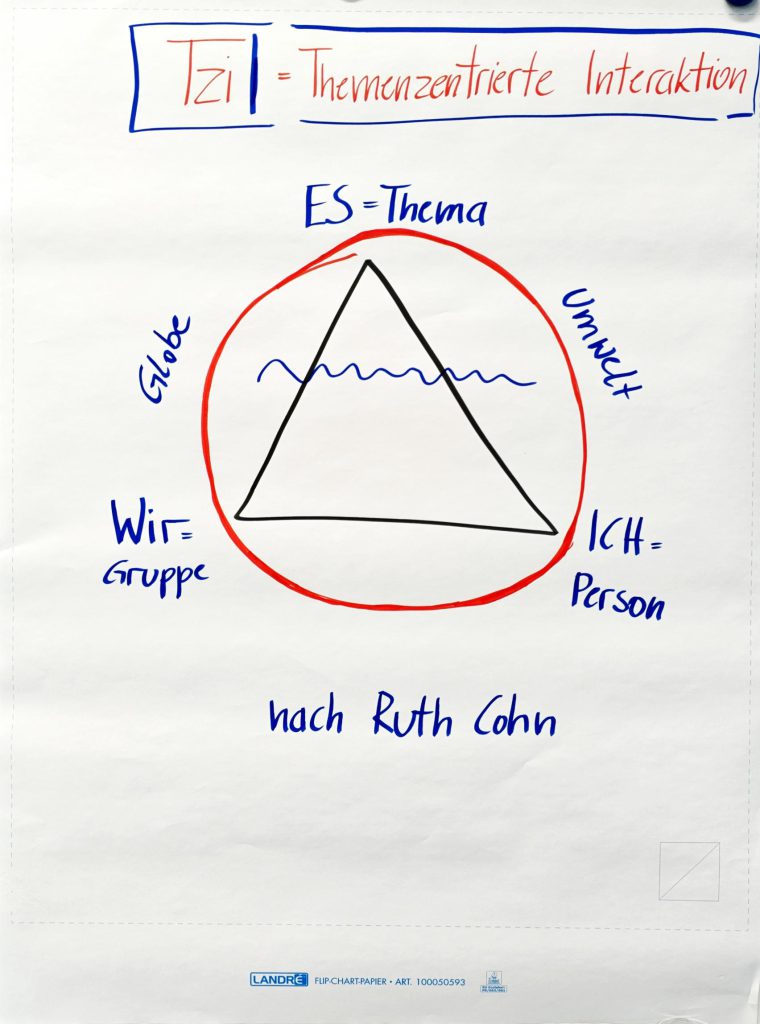 Tzi = Themenzentrierte Interaktion
ES = Thema
Globe
Umwelt
Wir =
Gruppe
ICH =
Person
nach Ruth Cohn
LANDRÉ FLIP-CHART-PAPIER • ART. 100050593